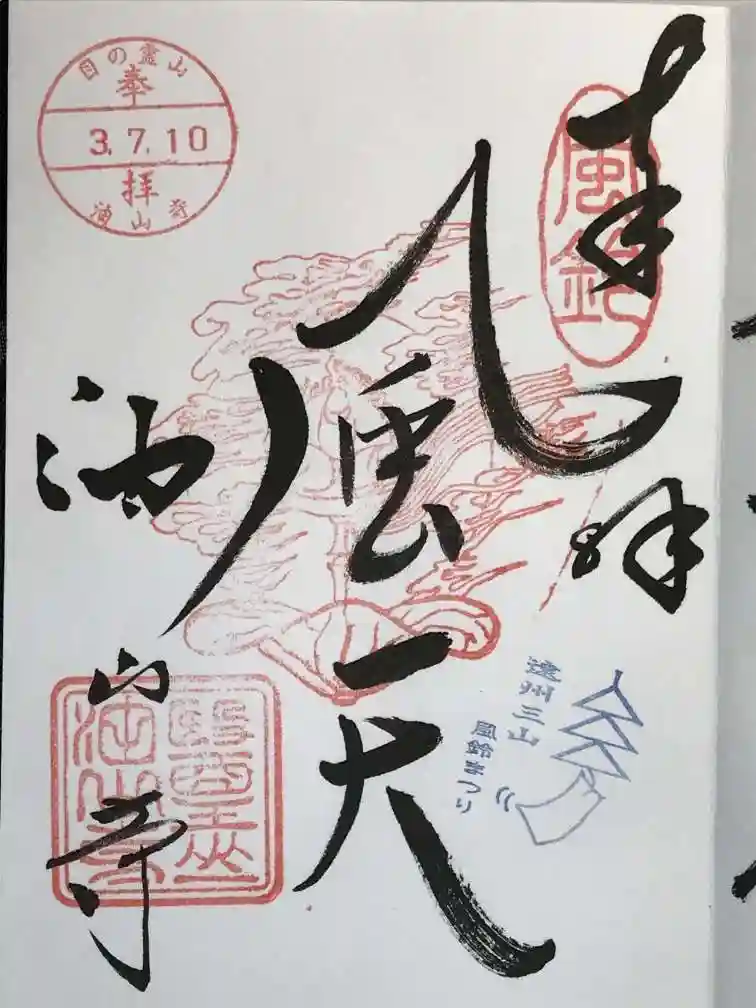 奉拝
風鈴
風天
油山寺
目の霊山
奉
3.7.10
拝
油山寺
遠州三山
風鈴まつり
油山寺